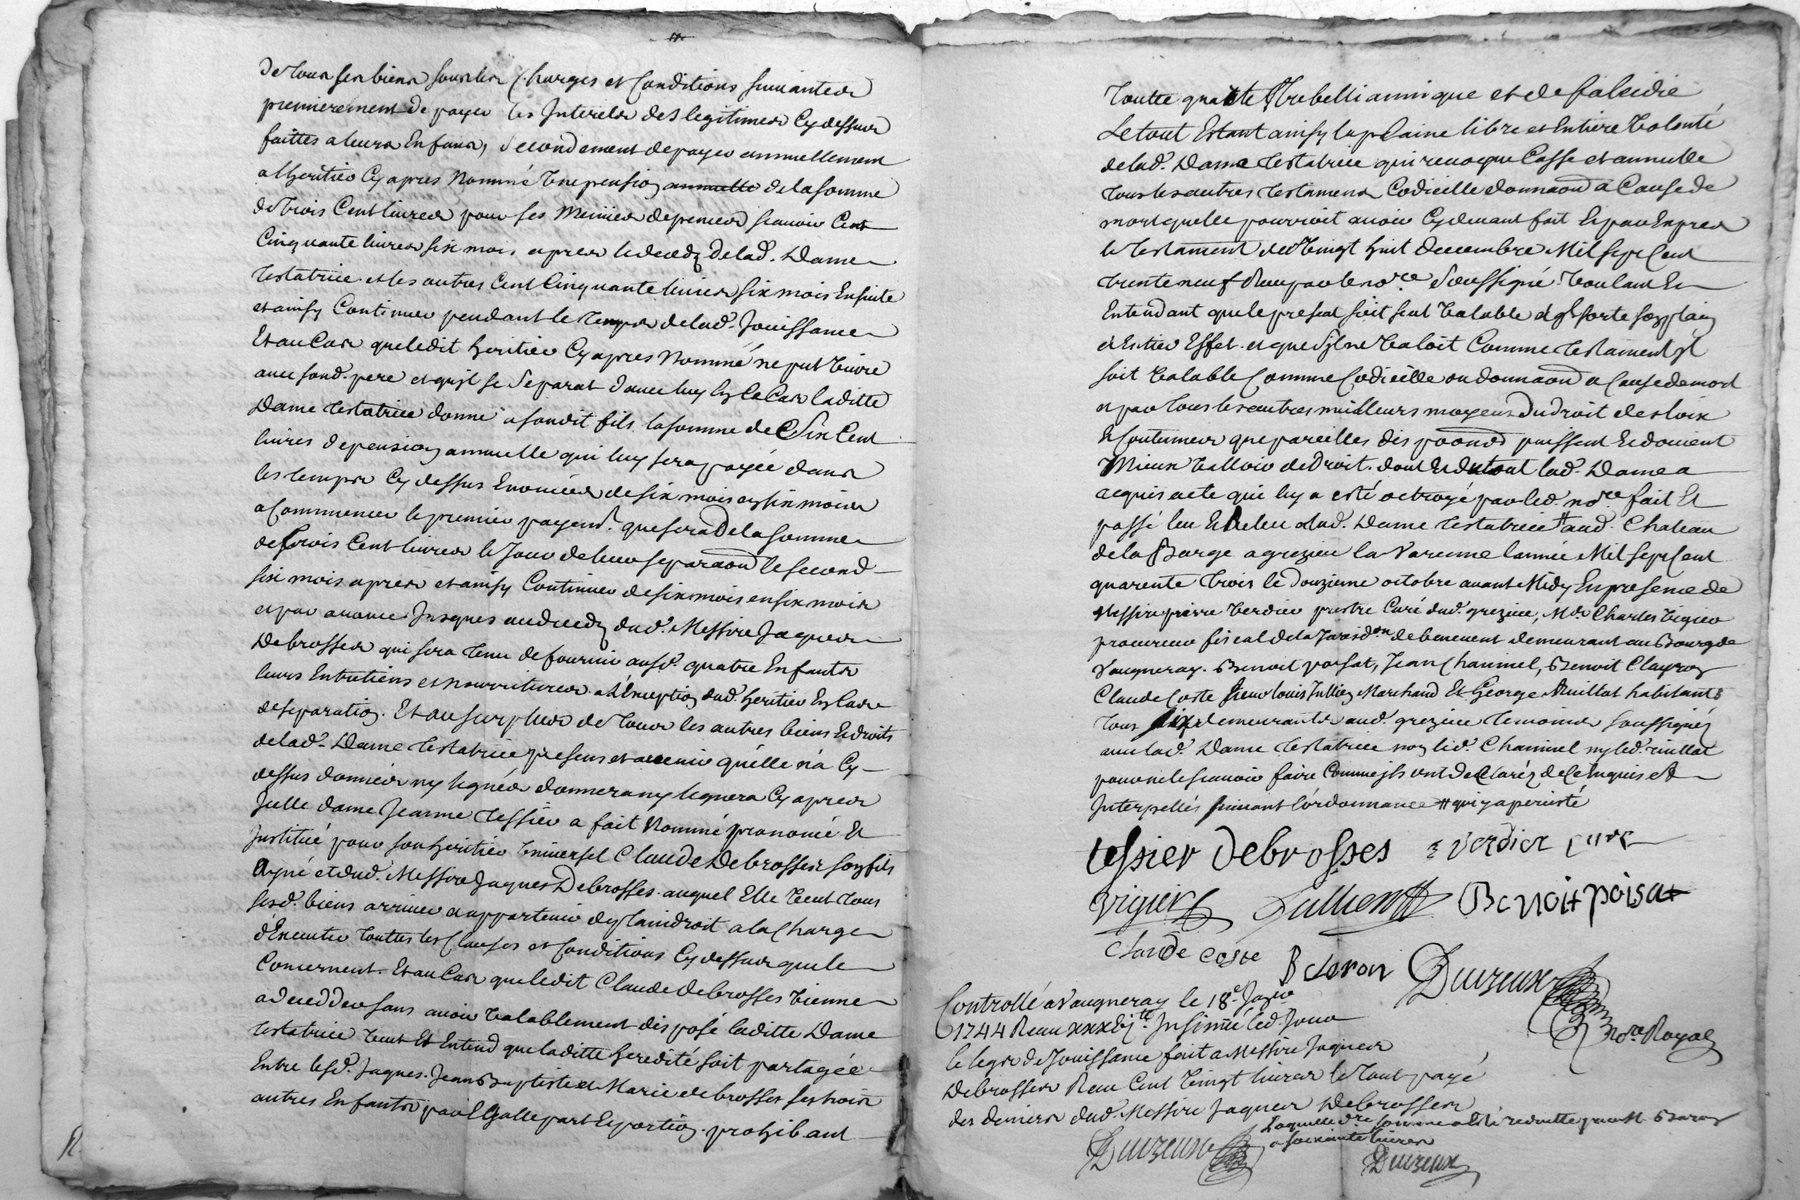 de tous ses biens sous les Charges et Conditions suivantes
premierement de payer les Interets des legitimes Cy dessus
faittes a leurs Enfans, Secondement de payer annuellement
a lheritier Cy apres Nommé Une pension annuelle de la somme
de trois Cent livres pour ses Menües depences scavoir Cent
Cinquante livres six mois apres le deceds de lad. Dame
testatrice et les autres Cent Cinquante livres six mois Ensuite
et ainsy Continuer pendant le temps de lad. Jouissance
Et au Cas que ledit heritier Cy apres Nommé ne put Vivre
avec sond. pere et quil se Separat d'avec luy En Ce Cas laditte
Dame testatrice donne a sondit fils la somme de Six Cent
livres de pension annuelle qui luy sera payée dans
les temps Cy dessus Enoncées de six mois en six mois
a Commencer le premier payem.t que sera de la somme
de trois Cent livres le Jour de leur separaon le second
six mois apres et ainsy Continuer de six mois en six mois
et par avance Jusques au deceds dud. Messire Jaques
Debrosses qui sera tenu de fournir ausd. quatre Enfants
leurs Entretiens et nourritures a l'Exception dud. heritier En Cas
de separation. Et au surplus de tous les autres biens Et droits
de lad. Dame testatrice presens et avenir qu'elle n'a Cy
dessus donnés ny legués donnera ny leguera Cy apres
Icelle dame Jeanne Tessier a fait Nommé pronomé Et
Institué pour son heritier Universel Claude Debrosses son fils
Ayné et dud. Messire Jaques Debrosses auquel Elle Veut tous
sesd. biens arriver et appartenir de plain droit a la Charge
d'Executer touttes les Clauses et Conditions Cy dessus qui le
Concernent. Et au Cas que ledit Claude Debrosses Vienne
a deceder sans avoir Valablement disposé laditte Dame
testatrice Veut Et Entend que laditte heredité soit partagée
Entre lesd. Jaques, Jean Baptiste et Marie debrosses ses trois
autres Enfants par Egalle part Et portion prohibant
toutte quarte trebellianique et de falcidie
Le tout Estant ainsy la plaine libre et Entiere Volonté
de lad. Dame testatrice qui revoque Casse et annulle
tous les autres testamens Codicille donnaon a Cause de
mort quelle pourroit avoir Cy devant fait Et par Expres
le testament du Vingt huit decembre Mil Sept Cent
trente neuf Reçu par le no.re Soussigné. Voulant Et
Entendant que le present soit seul Valable et qu'il sorte son plain
et Entier Effet. et que Sil ne Valoit Comme testament il
soit Valable Comme Codicille ou donnaon a Cause de mort
et par tous les autres meilleurs moyens du droit des loix
Et Coutumes que pareilles disposons puissent Et doivent
Mieux Valloir de droit. dont Et du tout lad. Dame a
requis acte qui luy a esté octroyé par led. no.re fait Et
passé leu Et Releu a lad. Dame testatrice # aud. Chateau
de la Barge a grezieu la Varenne l'année Mil sept Cent
quarente trois le douzieme octobre avant Midy En presence de
Messire pierre Verdier prestre Curé dud. grezieu, Me. Charles Vigier
procureur fiscal de la Jurisd.on de benevent demeurant au Bourg de
Vaugneray. Benoit poisat, Jean Chaninel, Benoit Clayron
Claude Coste Sieur Louis Jullien Marchand Et George Nuillat habitants
tous six demeurants aud. grezieu temoins soussignés
avec lad. Dame testatrice non led. Chaninel ny led. nuillat
pour ne le scavoir faire Comme ils ont declaréz de Ce Enquis Et
Interpellés suivant l'ordonnance # qui y a percisté
tessier Debrosses Verdier curé
Vigier Jullien Benoit poisat
claude coste B cleron Duizeux
no.re Royal
Controllé a Vaugneray le 18e. Janv
1744 Reçu Insinué led. Jour
le legs de Jouissance fait a Messire Jaques
Debrosses Reçu Cent Vingt livres le tout payé
des deniers dud. Messire Jaques Debrosses
Laquelle d.re somme a esté reduitte par M. Baron
a soixante livres
Duizeux
Duizeux
12